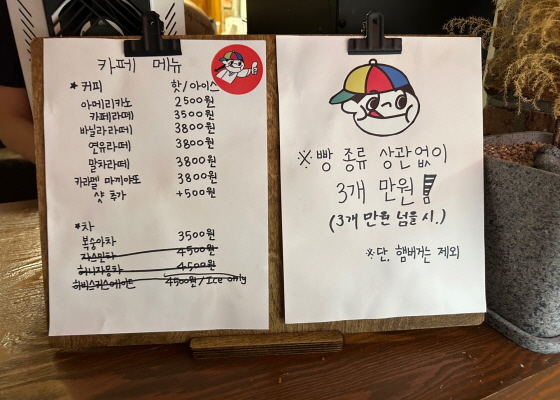 카페 메뉴
* 커피 핫/아이스
아메리카노 2500원
카페라떼 3500원
바닐라라떼 3800원
연유라떼 3800원
말차라떼 3800원
카라멜 마끼아또 3800원
샷 추가 +500원
*차
복숭아차 3500원
자스민차 4500원
허니자몽차 4500원
히비스커스에이드 4500원/Ice only
※빵 종류 상관없이
3개 만원!
(3개 만원 넘을 시.)
※단, 햄버거는 제외